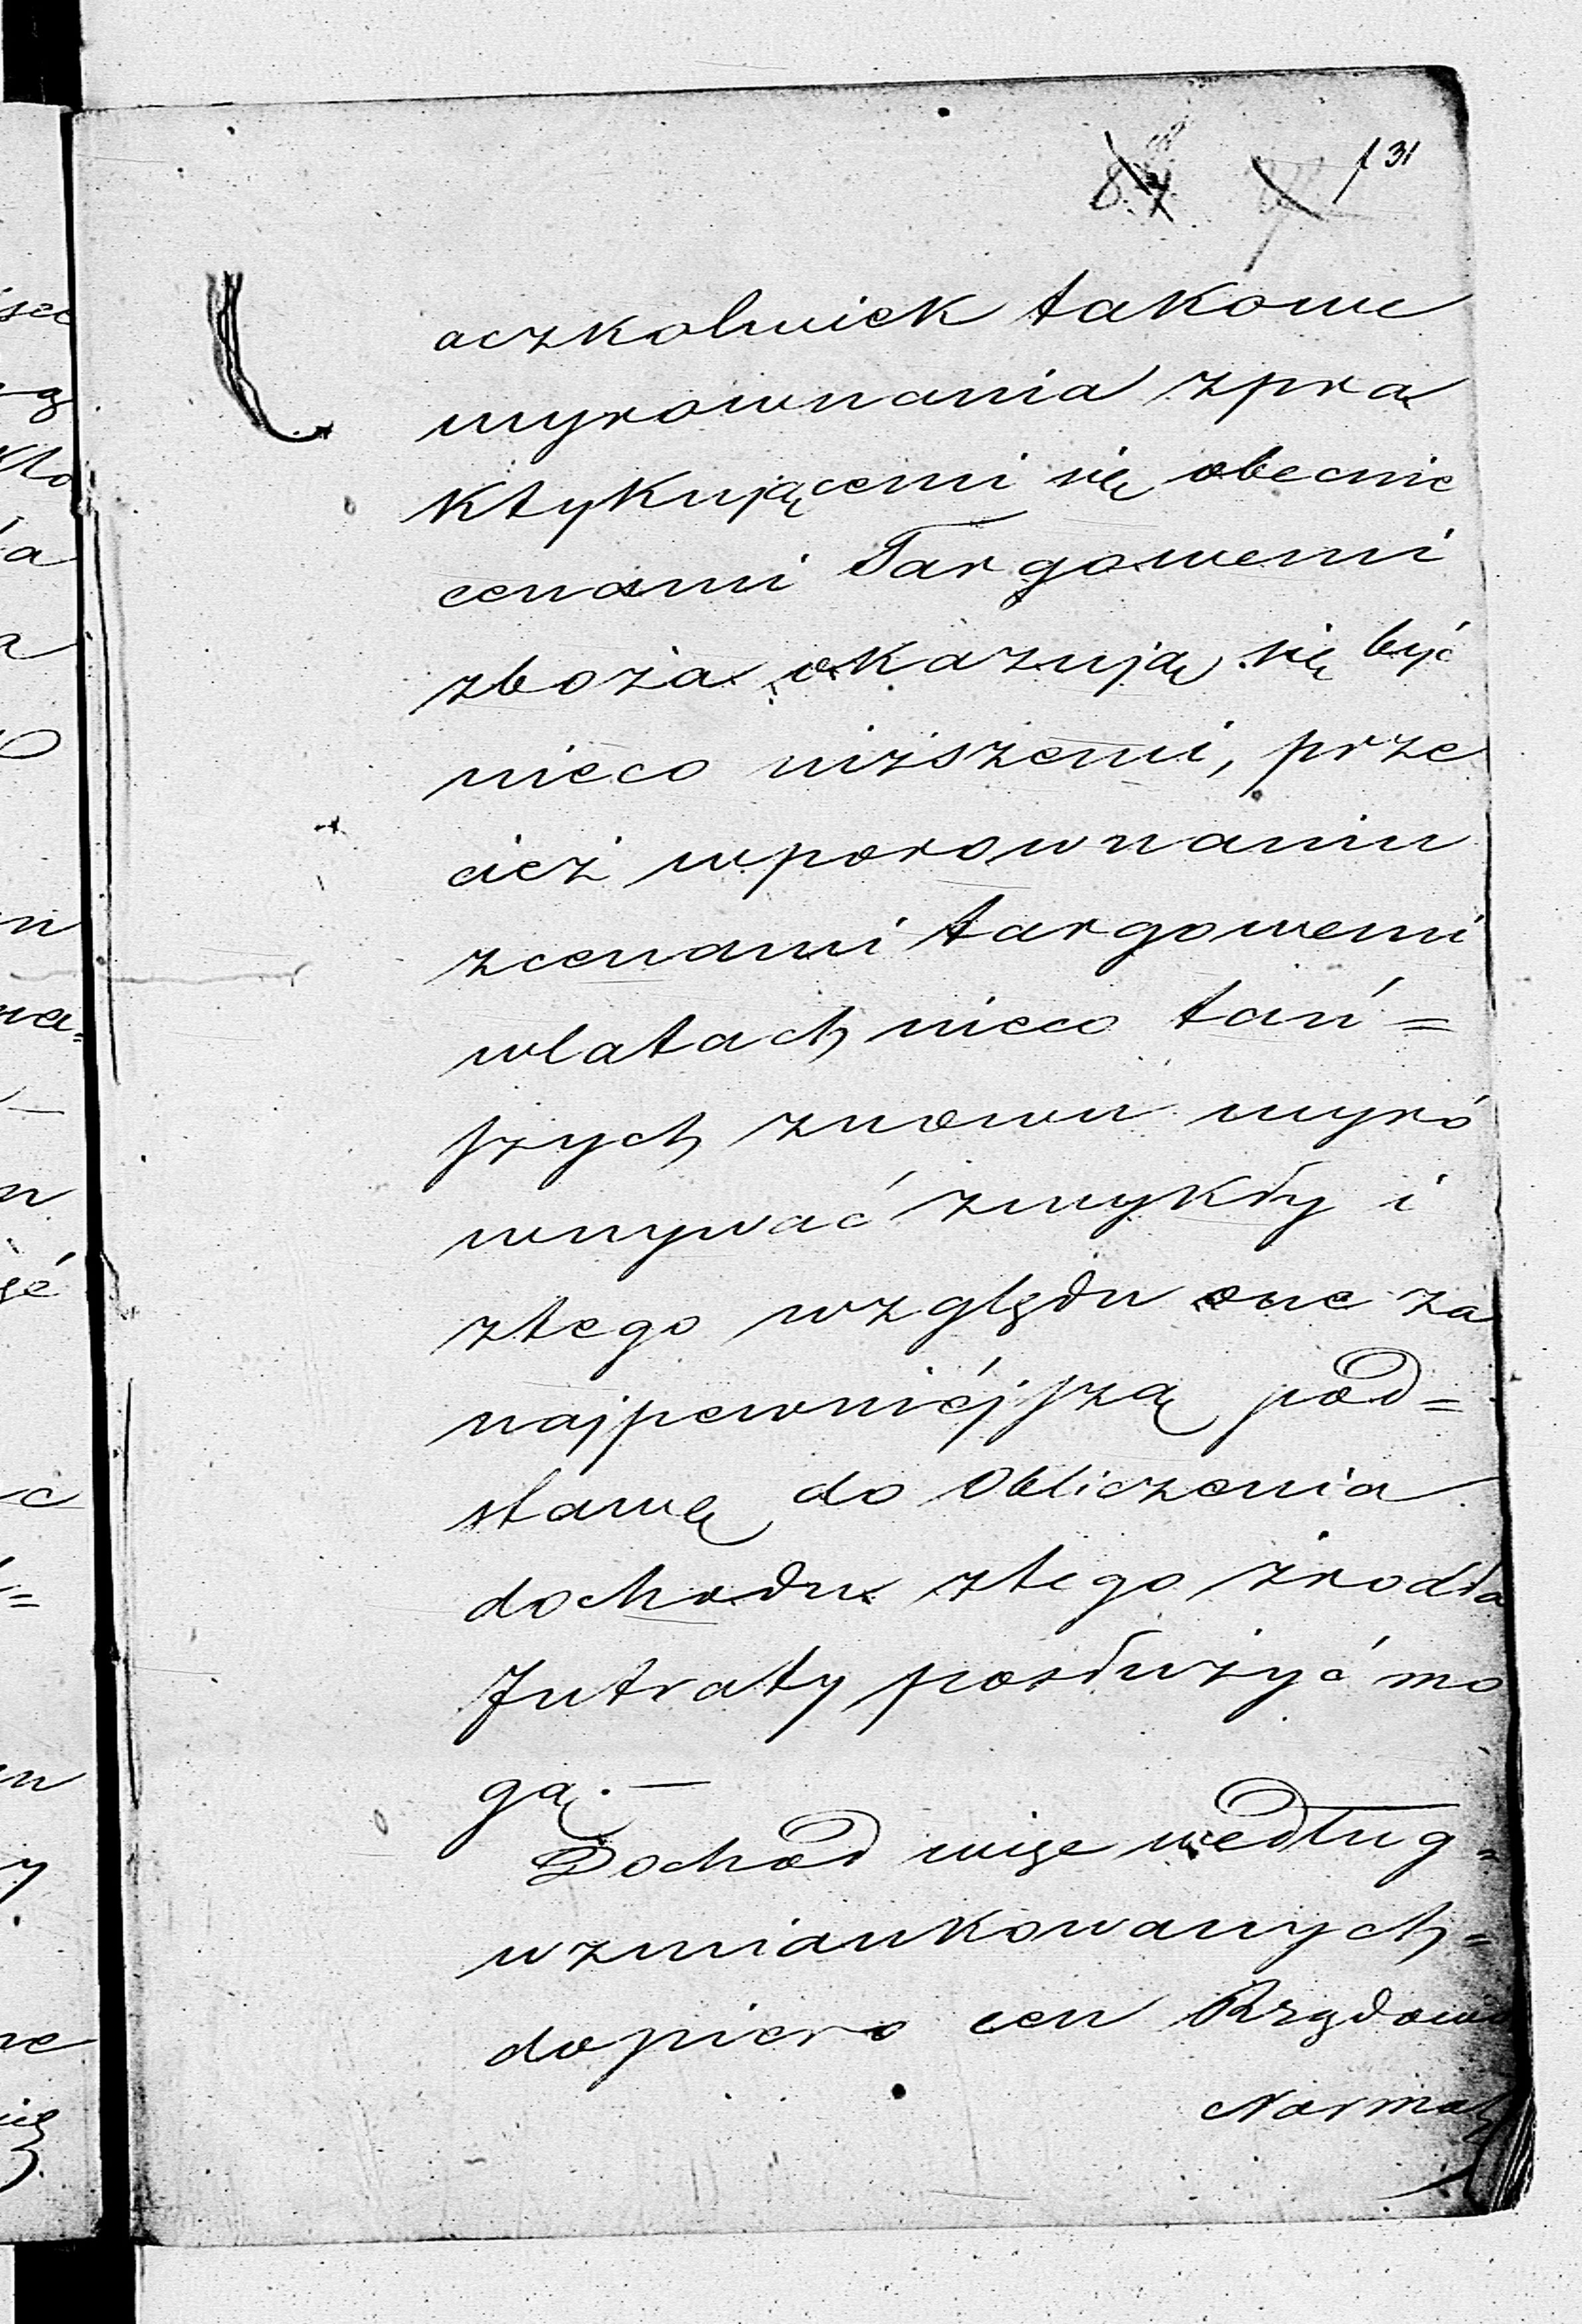 131
aczkolwiek takowe
wyrownania z pra
ktykującemi się obecnie
cenami Targowemi
zboża okazują się być
nieco niższemi, prze
cież w porownaniu
z cenami targowemi
w latach nieco tań=
szych znowu wyró
wnywać zwykły i
z tego względu one za
najpewniéjszą pod=
stawę do Obliczenia
dochodu z tego żrodła
Jntraty posłużyć mo
gą. —
Dochod więc według=
wzmiankowanych=
dopiero cen